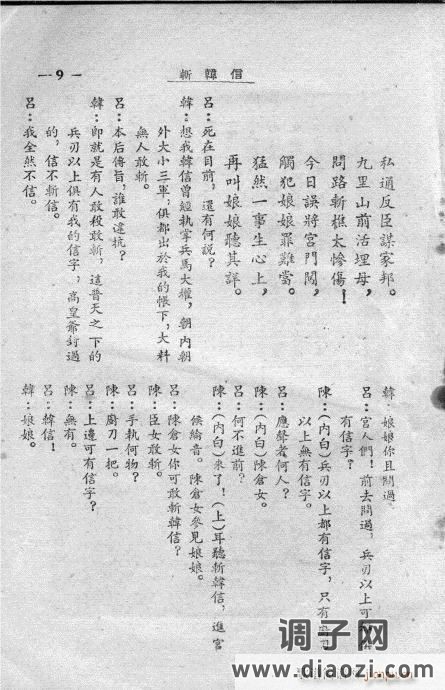 斬韓信
— 9 —
私通反臣謀家邦。
九里山前活埋母,
問路斬樵太慘傷!
今日誤將宮門闖,
觸犯娘娘罪難當。
猛然一事生心上,
再叫娘娘聽其詳。
呂:死在目前,還有何說?
韓:想我韓信曾經執掌兵馬大權,朝內朝
外大小三軍,俱都出於我的帳下,大料
無人敢斬。
呂:本后傳旨,誰敢違抗?
韓:即就是有人敢殺敢斬,這普天之下的
兵刃以上俱有我的信字,高皇爺封過
的,信不斬信。
呂:我全然不信。
韓:娘娘你且問過。
呂:宮人們!前去問過,兵刃以上可
有信字?
陳:(內白)兵刃以上都有信字,只有
以上無有信字。
呂:應聲者何人?
陳:(內白)陳倉女。
呂:何不進前?
陳:(內白)來了!(上)耳聽斬韓信,進宮
候綸音。陳倉女參見娘娘。
呂:陳倉女你可敢斬韓信?
陳:臣女敢斬。
呂:手執何物?
陳:廚刀一把。
呂:上邊可有信字?
陳:無有。
呂:韓信!
韓:娘娘。
调子网
www.diaozi.com